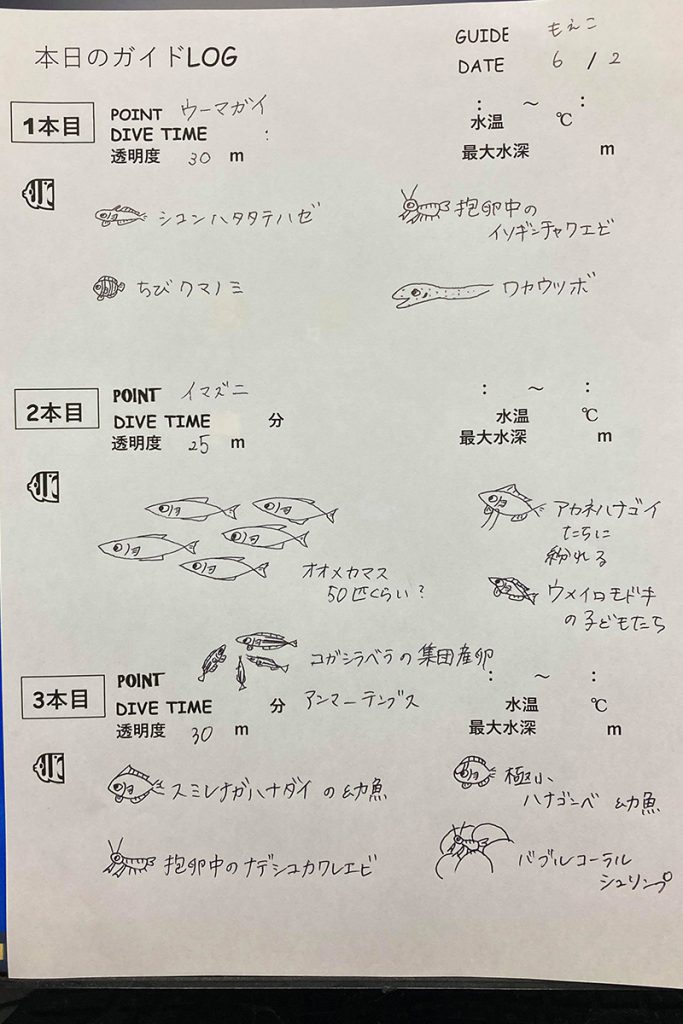 本日のガイドLOG
GUIDE もえこ
DATE 6 / 2
1本目
POINT ウーマガイ
DIVE TIME :
透明度 30 m
: ～ :
水温 ℃
最大水深 m
シコンハタタテハゼ
抱卵中の
イソギンチャクエビ
ちびクマノミ
ワカウツボ
2本目
POINT イマズニ
DIVE TIME 分
透明度 25 m
: ～ :
水温 ℃
最大水深 m
オオメカマス
50匹くらい?
アカネハナゴイ
たちに
紛れる
ウメイロモドキ
の子どもたち
コガシラベラの集団産卵
3本目
POINT
DIVE TIME 分 アンマーテンブス
透明度 30 m
: ～ :
水温 ℃
最大水深 m
スミレナガハナダイの幼魚
極小
ハナゴンベ 幼魚
抱卵中のナデシコカクレエビ
バブルコーラル
シュリンプ